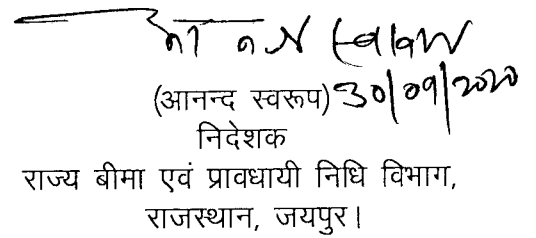 आनन्द स्वरूप
(आनन्द स्वरूप) 30/09/2020
निदेशक
राज्य बीमा एवं प्रावधायी निधि विभाग,
राजस्थान, जयपुर।